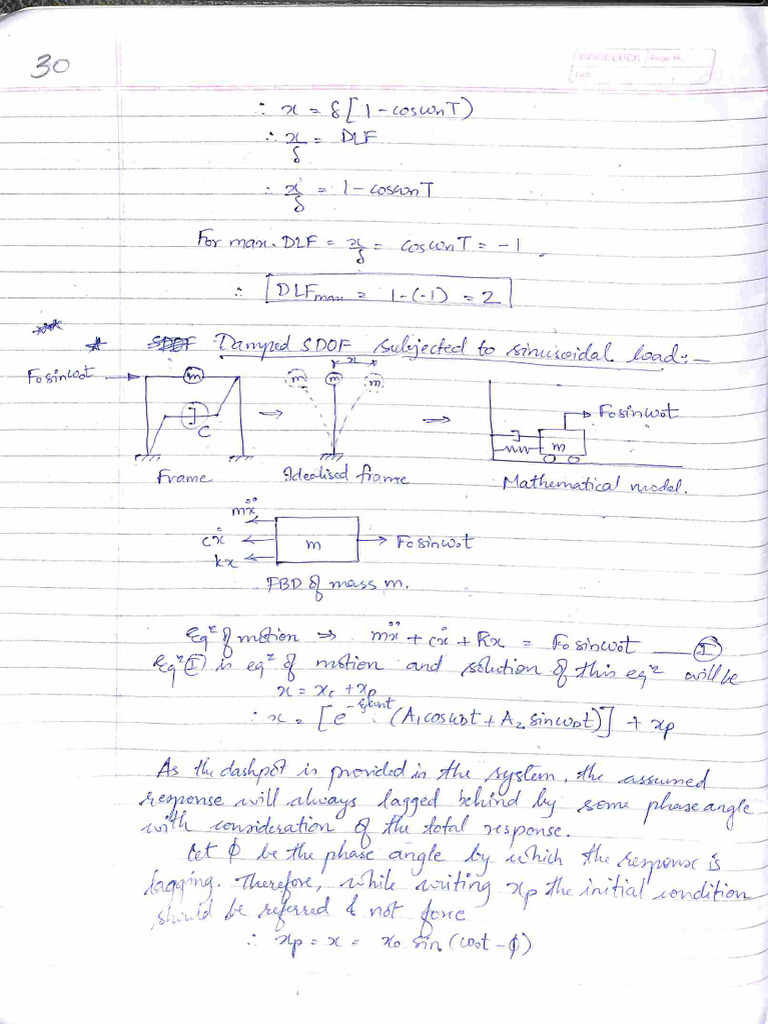 30
GOODLUCK Page No.
Date
∴ x = δ[1-cosωnT)
∴ x/δ = DLF
∴ x/δ = 1-cosωnT
For max. DLF = x/δ = cosωnT = -1
∴ DLFmax = 1-(-1) = 2
Damped SDOF subjected to sinusoidal load:-
Fosinωot m x m m m Fosinωot
C m
Frame Idealised frame Mathematical model.
mẍ
cẋ m Fosinωot
kx
FBD of mass m.
Eqⁿ of motion ⇒ mẍ + cẋ + kx = Fosinωot — I
Eqⁿ I is eqⁿ of motion and solution of this eqⁿ will be
x = xc + xp
∴ x = [e^-ξωnt . (A1cosωDt + A2 sinωDt)] + xp
As the dashpot is provided in the system, the assumed
response will always lagged behind by some phase angle
with consideration of the total response.
Let ϕ be the phase angle by which the response is
lagging. Therefore, while writing xp the initial condition
should be referred & not force
∴ xp = x = xo sin (ωot - ϕ)